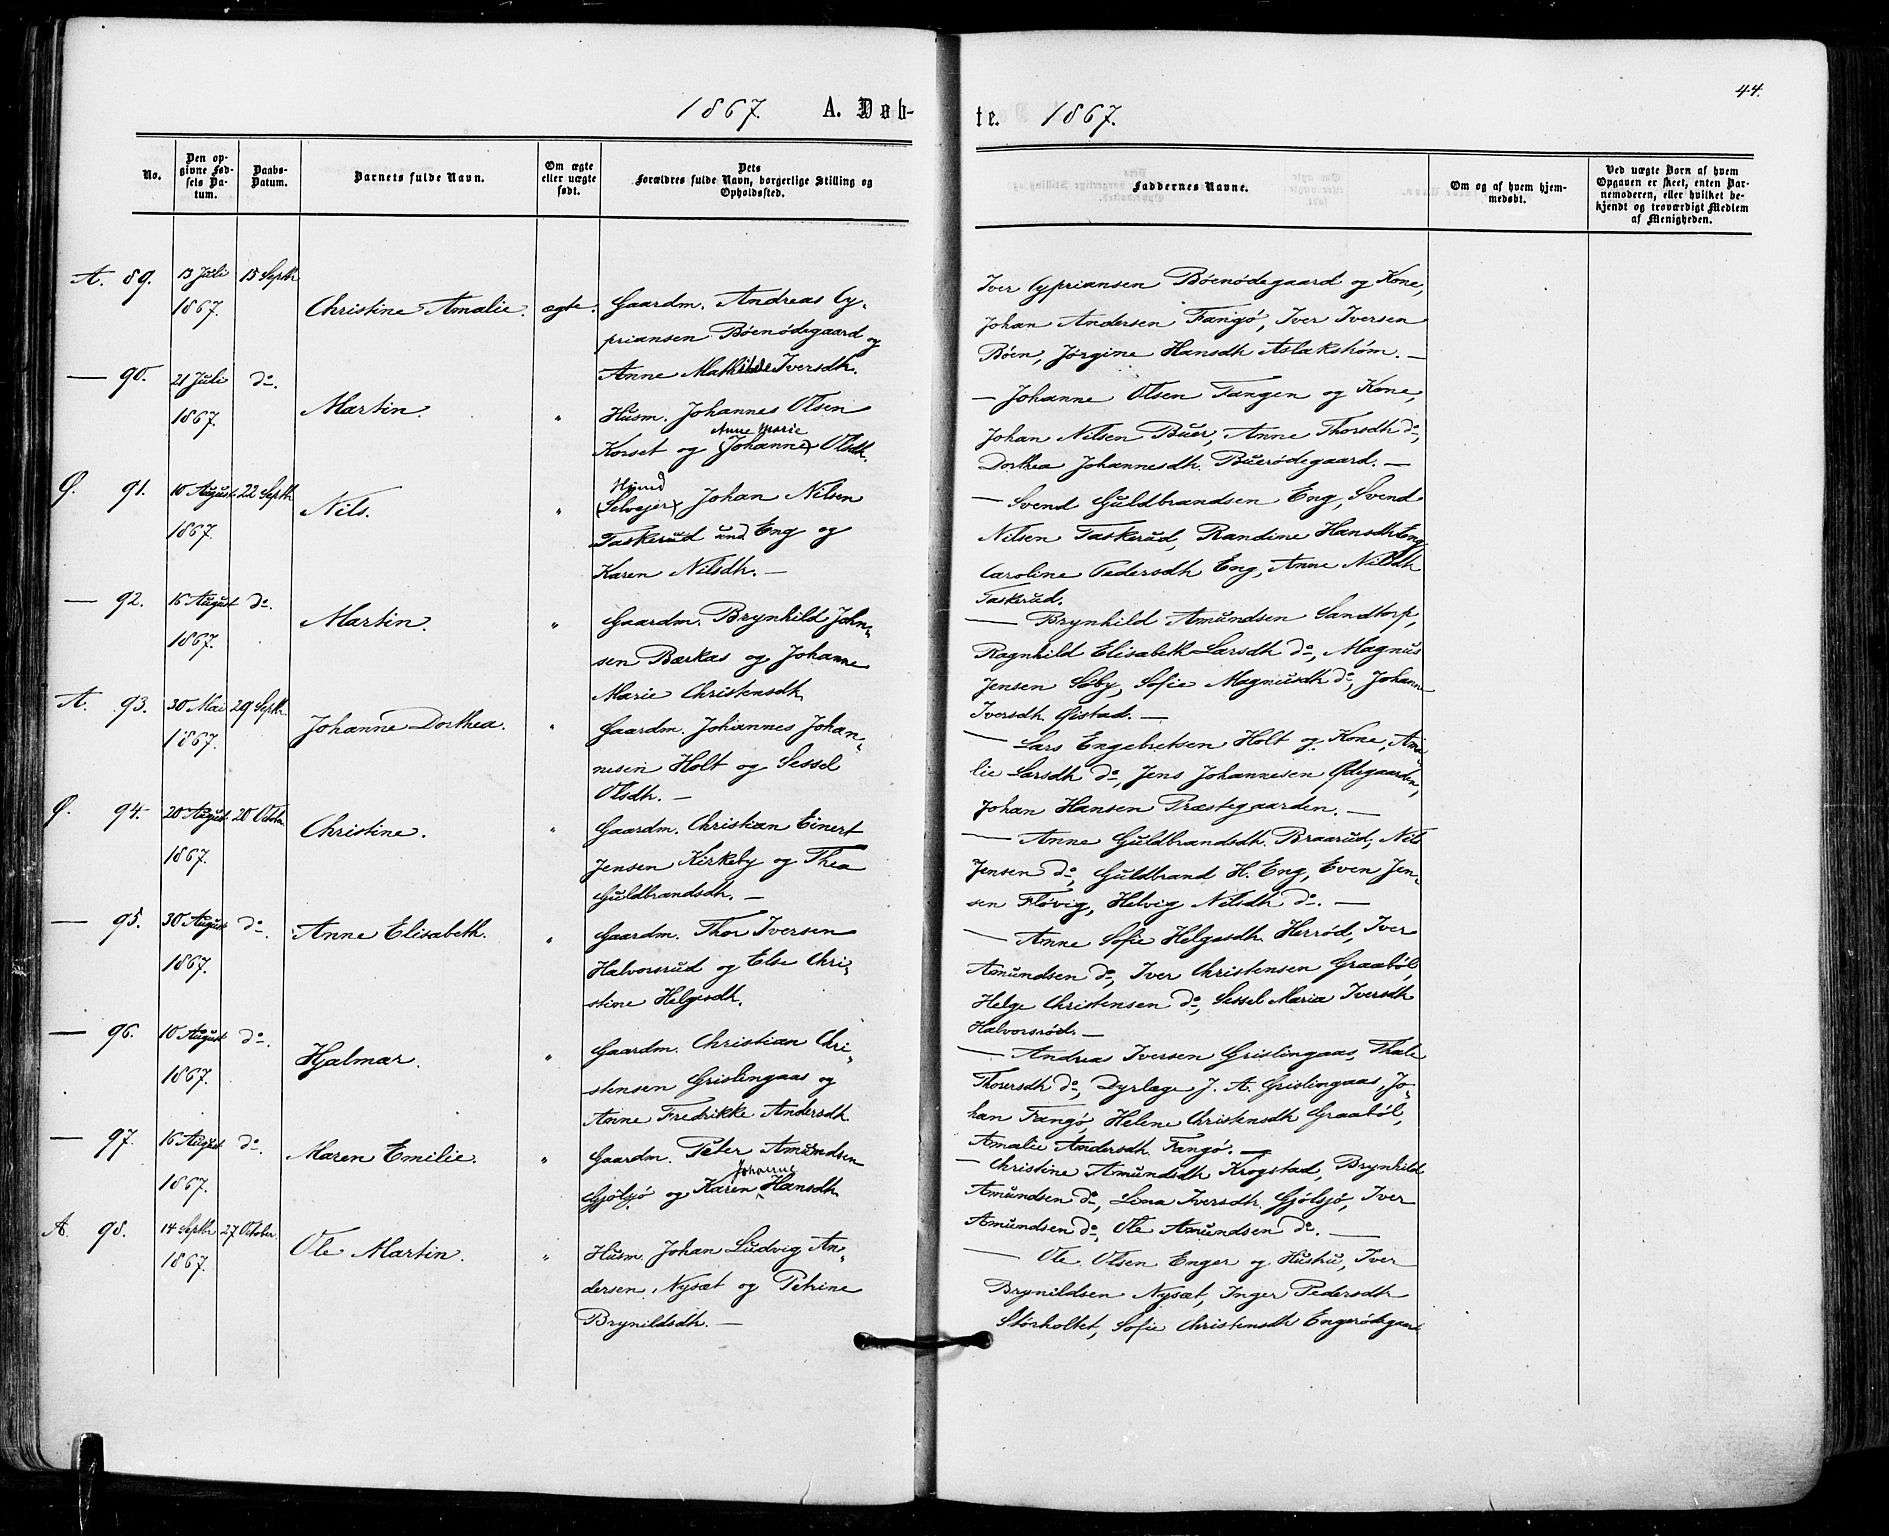 44.
1867. A. Døb-
te. 1867.
No.
Den op-
givne Fød-
sels Da-
tum.
Daabs-
Datum.
Barnets fulde Navn.
Om ægte
eller uægte
født.
Dets
Forældres fulde Navn, borgerlige Stilling og
Opholdssted.
Faddernes Navne.
Om og af hvem hjem-
medøbt.
Ved uægte Børn af hvem
Opgaven er skeet, enten Bar-
nemoderen, eller hvilket be-
kjendt og troværdigt Medlem
af Menigheden.
A. 89. 13 Juli 15 Septbr
1867. Christine Amalie. ægte. Gaardm. Andreas Cy-
priansen Bøenødegaard og
Anne Mathilde Iversdh.
Iver Cypriansen Bøenødegaard og Kone,
Johan Andersen Fangø, Iver Iversen
Bøen, Jørgine Hansdh Aslakshøm. —
— 90. 21 Juli do.
1867. Martin. " Husm. Johannes Olsen
Anne Marie
Korset og (Johanne) Olsdh.
— Johanne Olsen Fangen og Kone,
Johan Nilsen Buer, Anne Thorsdh do,
Dorthea Johannesdh. Buerødegaard. —
Ø. 91. 10 August 22 Septbr
1867. Nils. "
Hsmd
(Selvejer) Johan Nilsen
Taskerud und Eng og
Karen Nilsdh. —
— Svend Guldbrandsen Eng, Svend
Nilsen Taskerud, Randine Hansdh Eng
Caroline Pedersdh Eng, Anne Nilsdh
Taskerud.
— 92. 16 August do.
1867. Martin. " Gaardm. Brynhild John-
sen Bærkas og Johanne
Marie Christensdh
— Brynhild Amundsen Sandtorp,
Ragnhild Elisabeth Larsdh do, Magnus
Jensen Søby, Sofie Magnusdh do, Johanne
Iversdh. Østad. —
A. 93. 30 Mai 29 Septbr
1867. Johanne Dorthea. " Gaardm. Johannes Johan-
nesen Holt og Sessel
Olsdh. —
— Lars Engebretsen Holt og Kone, Ama-
lie Larsdh do, Jens Johannesen Ødegaarden,
Johan Hansen Præstegaarden. —
Ø. 94. 20 August 20 Octobr
1867. Christine. " Gaardm. Christian Einert
Jensen Kirkeby og Thea
Guldbrandsdh. —
— Anne Guldbrandsdh. Braarud, Nils
Jensen do, Guldbrand H. Eng, Even Jen-
sen Fløvig, Helvig Nilsdh do. —
— 95. 30 August do.
1867. Anne Elisabeth. " Gaardm. Thor Iversen
Halvorsrud og Else Chri-
stine Helgesdh.
— Anne Sofie Helgesdh. Herrød, Iver
Amundsen do, Iver Christensen Graabøl,
Helge Christensen do, Sessel Maria Iversdh
Halvorsrød. —
— 96. 10 August do.
1867. Hjalmar. " Gaardm. Christian Chri-
stensen Grislingaas og
Anne Fredrikke Andersdh
— Andreas Iversen Grislingaas, Thale
Thorersdh do, Dyrlæge J. A. Grislingaas, Jo-
han Fangø, Helene Christensdh Graabøl,
Amalie Andersdh. Fangø. —
— 97. 16 August do.
1867. Maren Emilie. " Gaardm. Peter Amundsen
Johanne
Gjølsjø og Karen Hansdh
— Christine Amundsdh Krogstad, Brynhild
Amundsen do, Lena Iversdh. Gjølsjø, Iver
Amundsen do, Ole Amundsen do. —
A. 98. 14 Septbr 27 October.
1867. Ole Martin. " Husm. Johan Ludvig An-
dersen Nysæt og Petrine
Brynildsdh. —
— Ole Olsen Enger og Hustru, Iver
Brynildsen Nysæt, Inger Pedersdh
Storholtet, Sofie Christensdh Engerødegaard